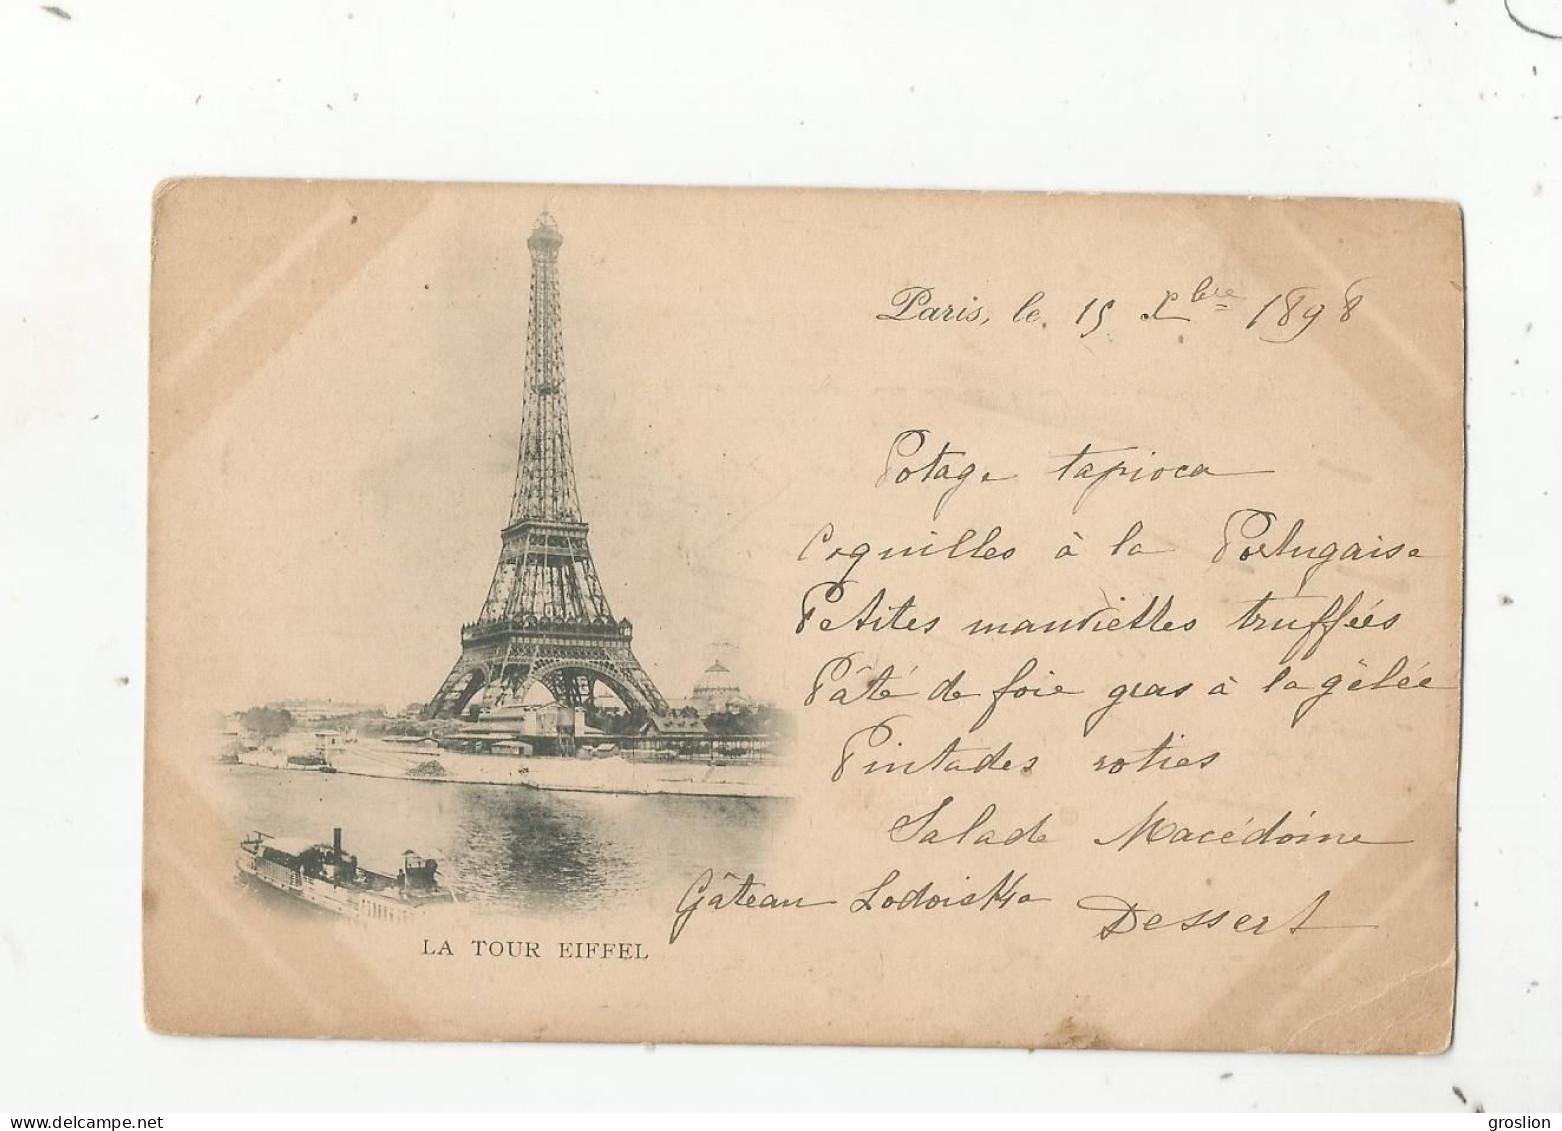 Paris, le 15 Xbre 1898
Potage tapioca
Coquilles à la Portugaise
Petites mauviettes truffées
Pâté de foie gras à la gelée
Pintades roties
Salade Macédoine
Gâteau Lodoiska Dessert
LA TOUR EIFFEL
delcampe.net
groslion